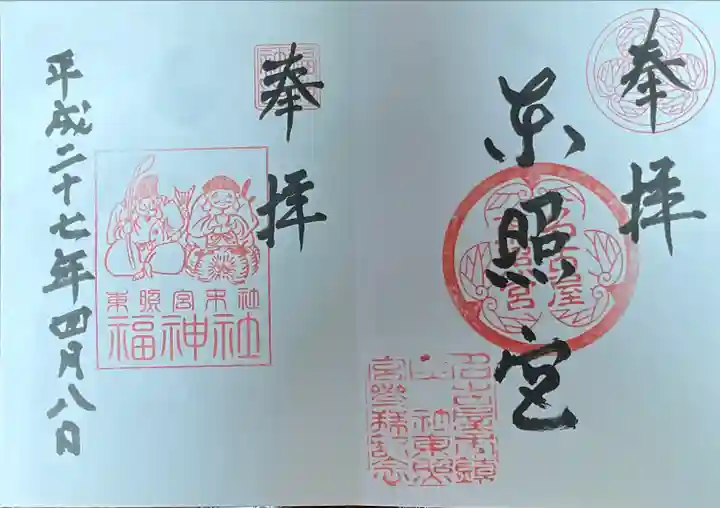 奉拝
東照宮
名古屋東照宮
名古屋市鎮
社東照
宮参拝記念
奉拝
東照宮末社
福神社
平成二十七年四月八日